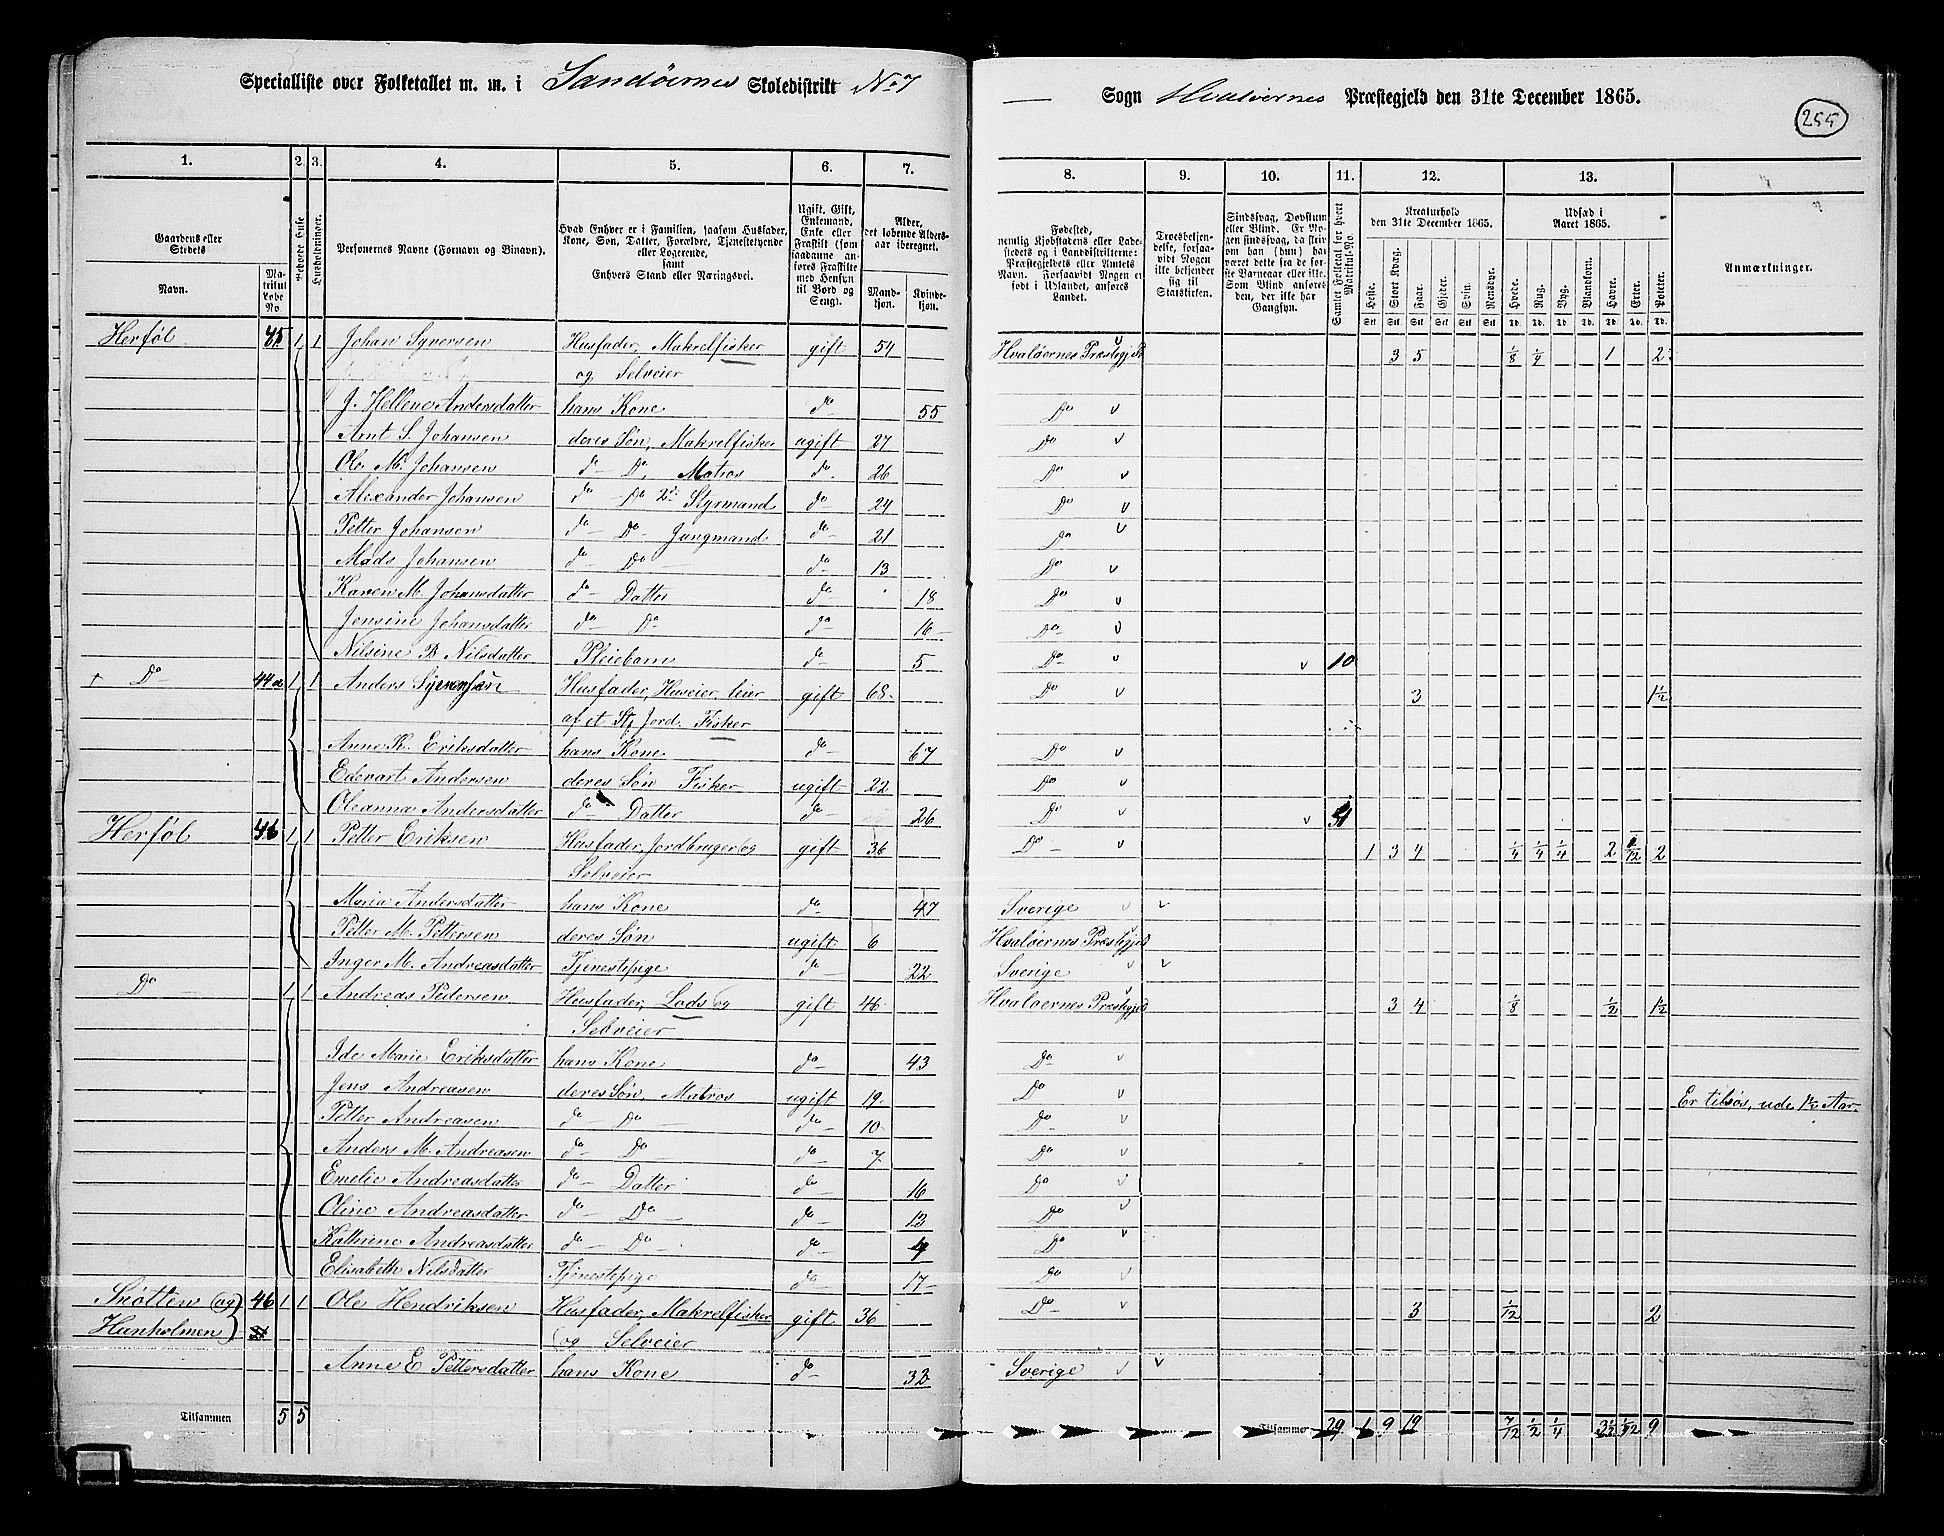 Specialliste over Folketallet m. m. i Sandöernes Skoledistrikt No 7
Sogn Hvalöernes Præstegjeld den 31te December 1865.
255
1. 2. 3. 4. 5. 6. 7. 8. 9. 10. 11. 12. 13.
Gaardens eller Stedets
Navn.
Matrikul Løbe No.
Beboede Huse
Husholdninger.
Personernes Navne (Fornavn og Binavn).
Hvad Enhver er i Familien, saasom Husfader, Kone, Søn, Datter, Forældre, Tjenestetyende eller Logerende, samt Enhvers Stand eller Næringsvei.
Ugift, Gift, Enkemand, Enke eller Fraskilt (som saadanne anføres Fraskilte med Hensyn til Bord og Seng).
Alder, det løbende Aldersaar iberegnet.
Mandkjøn. Kvindekjøn.
Fødested, nemlig Kjøbstadens eller Ladestedets og i Landdistrikterne: Præstegjeldets eller Amtets Navn. Forsaavidt Nogen er født i Udlandet, anføres Landet.
Troesbekjendelse, forsaavidt Nogen ikke bekjender sig til Statskirken.
Sindssvag, Døvstum eller Blind. Er Nogen sindssvag, da skriv om han (hun) har været dette fra de første Barneaar eller ikke. Som Blind anføres den, der ikke har Gangsyn.
Samlet Folketal for hvert Matrikul-No.
Kreaturhold den 31te December 1865.
Heste. Stort Kvæg. Faar. Gjeder. Svin. Rensdyr.
Udsæd i Aaret 1865.
Hvede. Rug. Byg. Blandkorn. Havre. Erter. Poteter.
Anmærkninger.
Herføl 45 1 1 Johan Syversen Husfader, Makrelfisker gift 54 Hvalöernes Præstegjeld 3 5 1/8 1/4 1 2
og Selveier
J. Hellene Andersdatter hans Kone do 55 Do
Arnt S. Johansen deres Søn, Makrelfisker ugift 27 Do
Ole M. Johansen do Do Matros do 26 Do
Alexander Johansen do Do 2den Styrmand do 24 Do
Petter Johansen do Do Jungmand do 21 Do
Mads Johansen do Do do 13 Do
Karen M. Johansdatter do Datter do 18 Do
Jensine Johansdatter do Do do 16 Do
Nilsine B Nilsdatter Pleiebarn do 5 Do 10
+ Do 44a 1 1 Anders Husfader, Huseier, leier gift 68 Do 3 1 1/2
af et St Jord. Fisker
Anne K. Eriksdatter hans Kone do 67 Do
Edevart Andersen deres Søn Fisker ugift 22 Do
Oleanna Andersdatter do Datter do 26 Do
Herføl 46 1 1 Petter Eriksen Husfader, Jordbruger og gift 36 Do 1 3 4 1/4 1/4 1/4 2 1/12 2
Selveier
Maria Andersdatter hans Kone do 47 Sverige
Petter M. Pettersen deres Søn ugift 6 Hvalöernes Præstegjeld
Inger M. Andreasdatter Tjenestepige do 22 Sverige
Do 1 1 Andreas Pedersen Husfader, Lods og gift 46 Hvaloernes Præstegjeld 3 4 1/8 1/2 1 1/2
Selveier
Ide Marie Eriksdatter hans Kone do 43 Do
Jens Andreasen deres Søn, Matros ugift 19 Do Er tilsøs, ude 1 1/2 Aar
Petter Andreasen do Do do 10 Do
Anders M. Andreasen do Do do 7 Do
Emelie Andreasdatter do Datter do 16 Do
Oline Andreasdatter do Do do 13 Do
Kathrine Andreasdatter do Do do 4 Do
Elisabeth Nilsdatter Tjenestepige do 17 Do
Skötten (og 46 1 1 Ole Hendriksen Husfader, Makrelfisker gift 36 Do 3 1/12 2
Hunholmen) og Selveier
Anne E Pettersdatter hans Kone do 32 Sverige
Tilsammen 5 5 Tilsammen 29 1 9 19 7/12 1/2 1/4 3 1/2 1/12 9